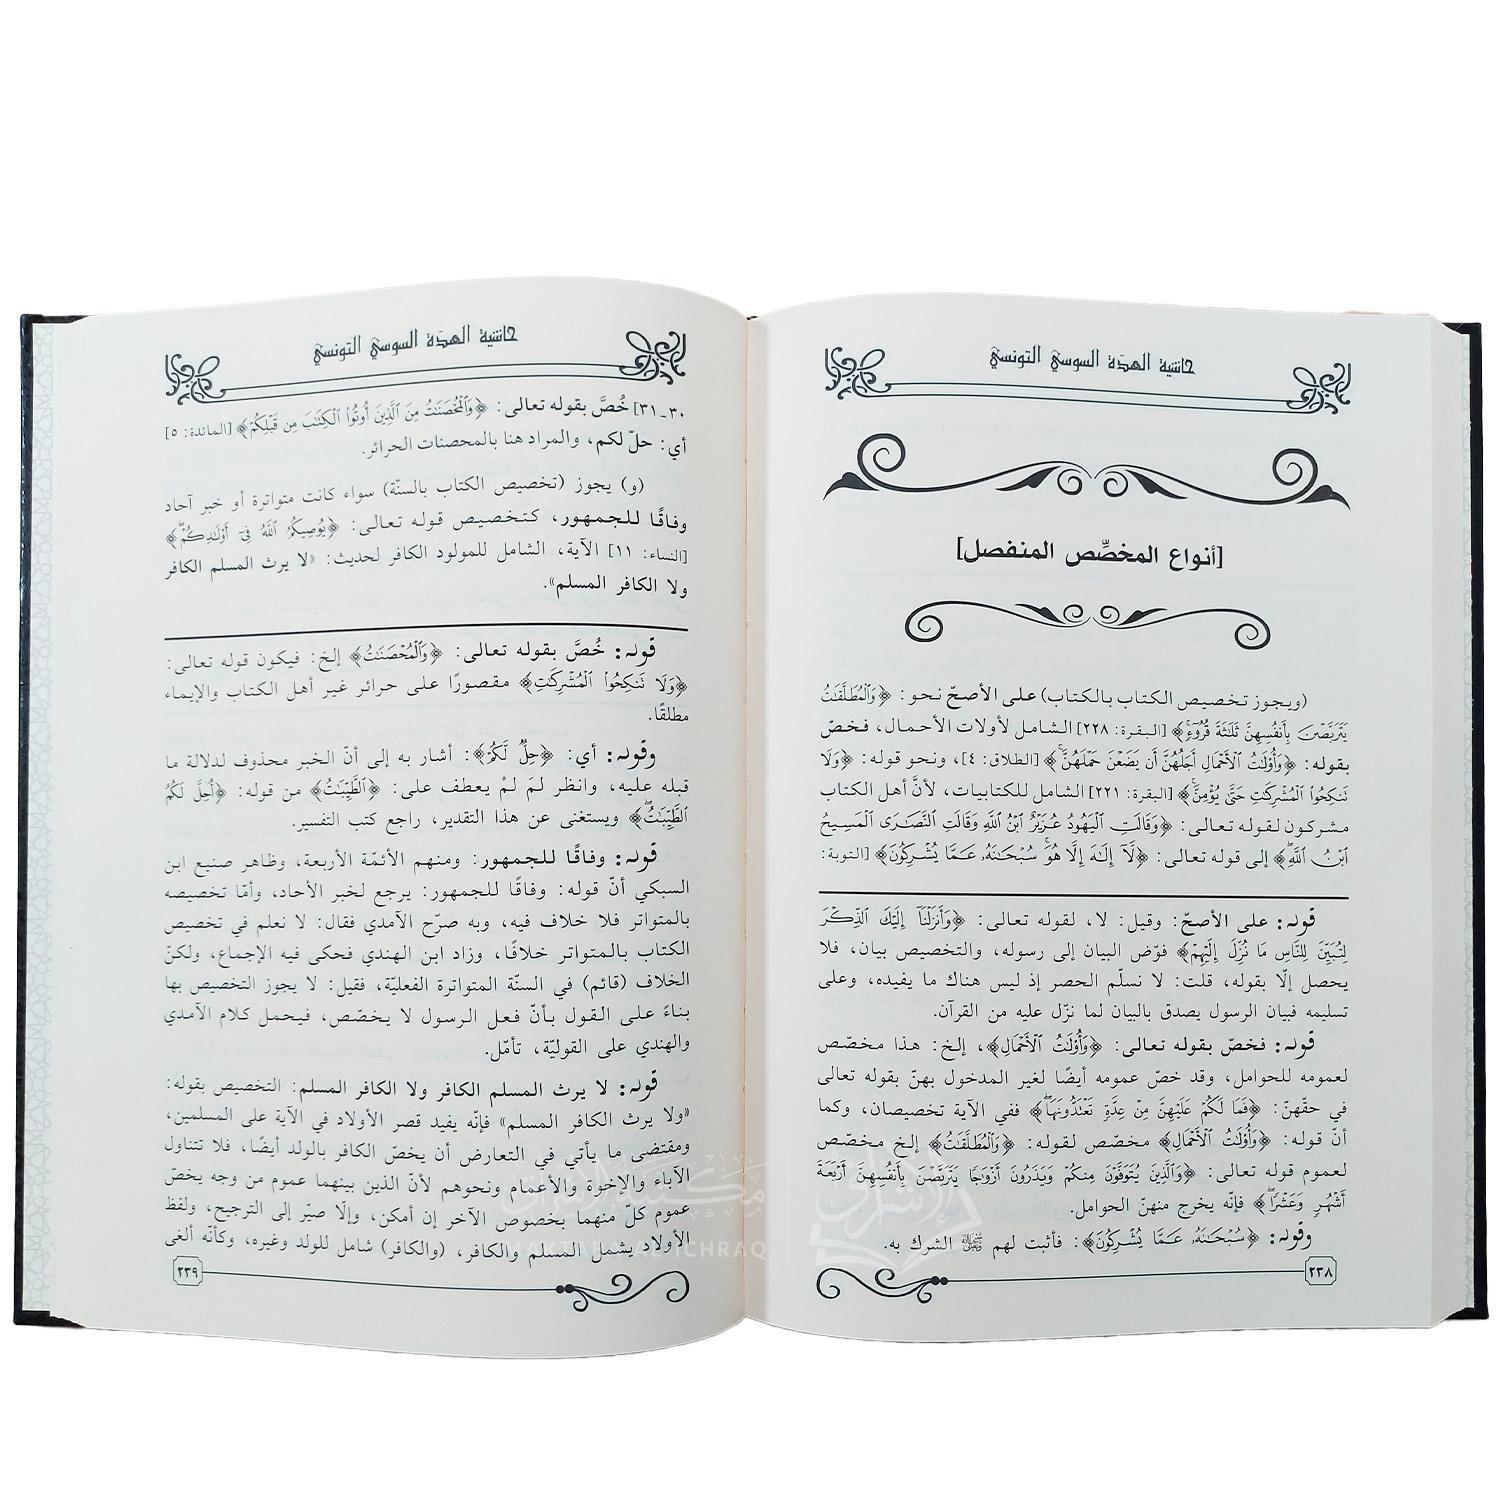 حاشية الهدّة السوسي التونسي
[أنواع المخصِّص المنفصل]
(ويجوز تخصيص الكتاب بالكتاب) على الأصحّ نحو: ﴿وَٱلْمُطَلَّقَاتُ
يَتَرَبَّصْنَ بِأَنفُسِهِنَّ ثَلَاثَةَ قُرُوٓءٍ﴾ [البقرة: ٢٢٨] الشامل لأولات الأحمال، فخصّ
بقوله: ﴿وَأُوْلَاتُ ٱلْأَحْمَالِ أَجَلُهُنَّ أَن يَضَعْنَ حَمْلَهُنَّ﴾ [الطلاق: ٤]، ونحو قوله: ﴿وَلَا
تَنكِحُوا۟ ٱلْمُشْرِكَاتِ حَتَّىٰ يُؤْمِنَّ﴾ [البقرة: ٢٢١] الشامل للكتابيات، لأنّ أهل الكتاب
مشركون لقوله تعالى: ﴿وَقَالَتِ ٱلْيَهُودُ عُزَيْرٌ ٱبْنُ ٱللَّهِ وَقَالَتِ ٱلنَّصَارَى ٱلْمَسِيحُ
ٱبْنُ ٱللَّهِ﴾ إلى قوله تعالى: ﴿لَّآ إِلَٰهَ إِلَّا هُوَ سُبْحَانَهُۥ عَمَّا يُشْرِكُونَ﴾ [التوبة:
قوله: على الأصحّ: وقيل: لا، لقوله تعالى: ﴿وَأَنزَلْنَآ إِلَيْكَ ٱلذِّكْرَ
لِتُبَيِّنَ لِلنَّاسِ مَا نُزِّلَ إِلَيْهِمْ﴾ فوّض البيان إلى رسوله، والتخصيص بيان، فلا
يحصل إلّا بقوله، قلت: لا نسلّم الحصر إذ ليس هناك ما يفيده، وعلى
تسليمه فبيان الرسول يصدق بالبيان لما نزّل عليه من القرآن.
قوله: فخصّ بقوله تعالى: ﴿وَأُوْلَاتُ ٱلْأَحْمَالِ﴾، إلخ: هذا مخصّص
لعمومه للحوامل، وقد خصّ عمومه أيضًا لغير المدخول بهنّ بقوله تعالى
في حقّهنّ: ﴿فَمَا لَكُمْ عَلَيْهِنَّ مِنْ عِدَّةٍ تَعْتَدُّونَهَا﴾ ففي الآية تخصيصان، وكما
أنّ قوله: ﴿وَأُوْلَاتُ ٱلْأَحْمَالِ﴾ مخصّص لقوله: ﴿وَٱلْمُطَلَّقَاتُ﴾ إلخ مخصّص
لعموم قوله تعالى: ﴿وَٱلَّذِينَ يُتَوَفَّوْنَ مِنكُمْ وَيَذَرُونَ أَزْوَاجًا يَتَرَبَّصْنَ بِأَنفُسِهِنَّ أَرْبَعَةَ
أَشْهُرٍ وَعَشْرًا﴾ فإنّه يخرج منهنّ الحوامل.
وقوله: ﴿سُبْحَانَهُۥ عَمَّا يُشْرِكُونَ﴾: فأثبت لهم ﷺ الشرك به.
٢٣٨
حاشية الهدّة السوسي التونسي
٣٠_٣١] خُصَّ بقوله تعالى: ﴿وَٱلْمُحْصَنَاتُ مِنَ ٱلَّذِينَ أُوتُوا۟ ٱلْكِتَابَ مِن قَبْلِكُمْ﴾ [المائدة: ٥]
أي: حلّ لكم، والمراد هنا بالمحصنات الحرائر.
(و) يجوز (تخصيص الكتاب بالسنّة) سواء كانت متواترة أو خبر آحاد
وفاقًا للجمهور، كتخصيص قوله تعالى: ﴿يُوصِيكُمُ ٱللَّهُ فِىٓ أَوْلَادِكُمْ﴾
[النساء: ١١] الآية، الشامل للمولود الكافر لحديث: «لا يرث المسلم الكافر
ولا الكافر المسلم».
قوله: خُصَّ بقوله تعالى: ﴿وَٱلْمُحْصَنَاتُ﴾ إلخ: فيكون قوله تعالى:
﴿وَلَا تَنكِحُوا۟ ٱلْمُشْرِكَاتِ﴾ مقصورًا على حرائر غير أهل الكتاب والإيماء
مطلقًا.
وقوله: أي: ﴿حِلٌّ لَّكُمْ﴾: أشار به إلى أنّ الخبر محذوف لدلالة ما
قبله عليه، وانظر لمَ لمْ يعطف على: ﴿ٱلطَّيِّبَاتُ﴾ من قوله: ﴿أُحِلَّ لَكُمُ
ٱلطَّيِّبَاتُ﴾ ويستغنى عن هذا التقدير، راجع كتب التفسير.
قوله: وفاقًا للجمهور: ومنهم الأئمّة الأربعة، وظاهر صنيع ابن
السبكي أنّ قوله: وفاقًا للجمهور: يرجع لخبر الأحاد، وأمّا تخصيصه
بالمتواتر فلا خلاف فيه، وبه صرّح الآمدي فقال: لا نعلم في تخصيص
الكتاب بالمتواتر خلافًا، وزاد ابن الهندي فحكى فيه الإجماع، ولكنّ
الخلاف (قائم) في السنّة المتواترة الفعليّة، فقيل: لا يجوز التخصيص بها
بناءً على القول بأنّ فعل الرسول لا يخصّص، فيحمل كلام الآمدي
والهندي على القوليّة، تأمّل.
قوله: لا يرث المسلم الكافر ولا الكافر المسلم: التخصيص بقوله:
«ولا يرث الكافر المسلم» فإنّه يفيد قصر الأولاد في الآية على المسلمين،
ومقتضى ما يأتي في التعارض أن يخصّ الكافر بالولد أيضًا، فلا تتناول
الآباء والإخوة والأعمام ونحوهم لأنّ الذين بينهما عموم من وجه يخصّ
عموم كلّ منهما بخصوص الآخر إن أمكن، وإلّا صيّر إلى الترجيح، ولفظ
الأولاد يشمل المسلم والكافر، (والكافر) شامل للولد وغيره، وكأنّه ألغى
٢٣٩
مكتبة الإشراق
MAKTABA AL-ICHRAQ